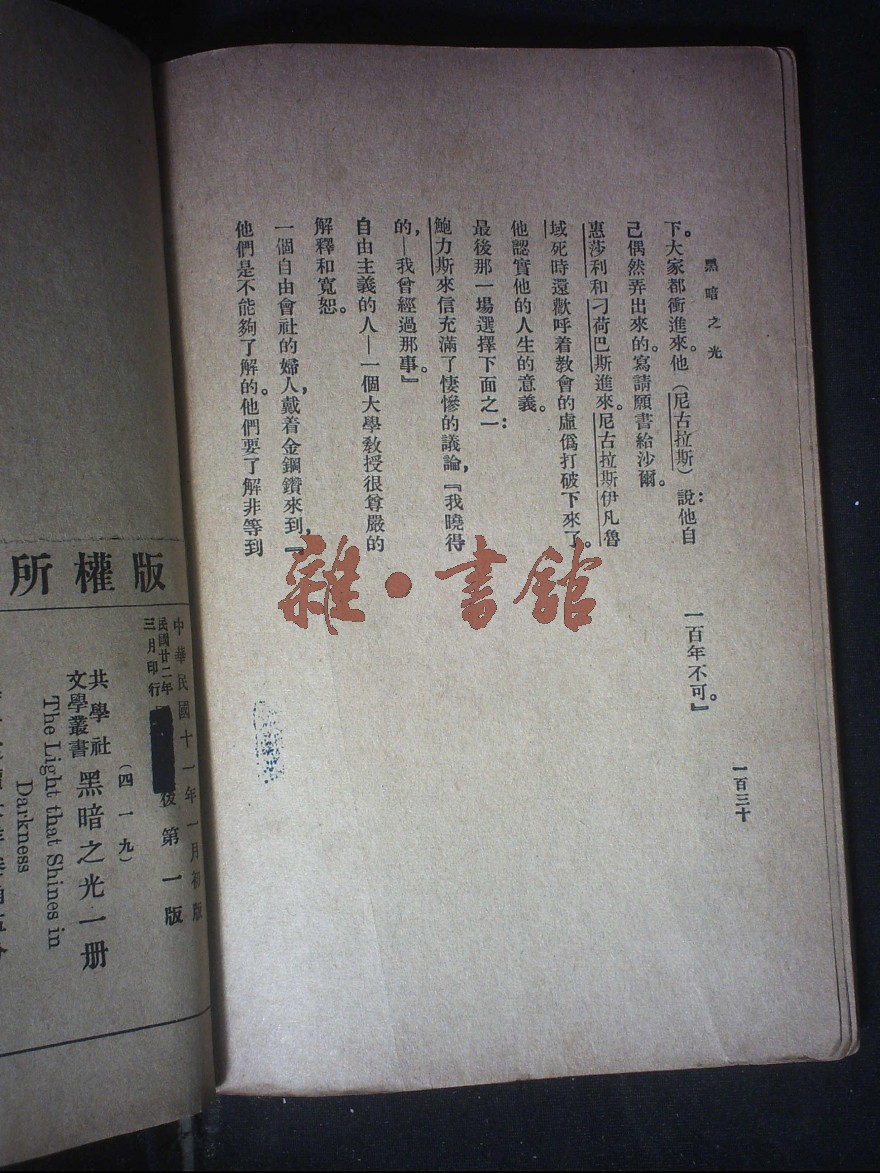 黑暗之光
下。大家都衝進來。他(尼古拉斯)說:他自
己偶然弄出來的。寫請願書給沙爾。
惠莎利和刁荷巴斯進來。尼古拉斯伊凡魯
域死時還歡呼着教會的虛僞打破下來了。
他認實他的人生的意義。
最後那一場選擇下面之一:
鮑力斯來信充滿了悽慘的議論,『我曉得
的,—我曾經過那事。』
自由主義的人—一個大學教授很尊嚴的
解釋和寬恕。
一個自由會社的婦人,戴着金鋼鑽來到,『
他們是不能夠了解的。他們要了解非等到
一百年不可。』
一百三十
雜·書館
版權所
中華民國十一年一月初版
民國廿二年
三月印行
後第一版
(四一九)
共學社
文學叢書
黑暗之光一册
The Light that Shines in
Darkness